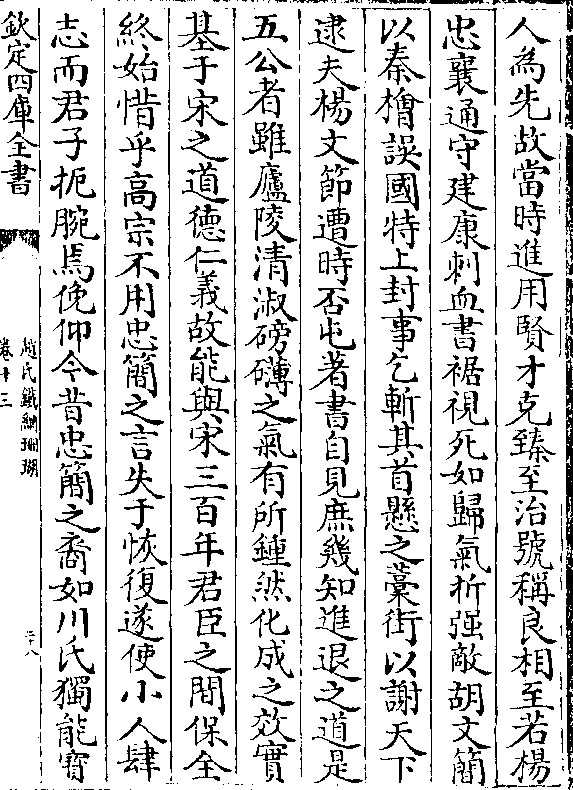 人為先故當時進用賢才克臻至治號稱良相至若楊
忠襄通守建康刺血書裾視死如歸氣折强敵胡文簡
以秦檜誤國特上封事乞斬其首懸之藁街以謝天下
逮夫楊文節遭時否屯著書自見庶幾知進退之道是
五公者雖廬陵清淑磅礴之氣有所鍾然化成之效實
基于宋之道德仁義故能與宋三百年君臣之間保全
終始惜乎高宗不用忠簡之言失于恢復遂使小人肆
志而君子扼腕焉俛仰今昔忠簡之裔如川氏獨能寳
欽定四庫全書
趙氏鐵網珊瑚
卷十三
二十八